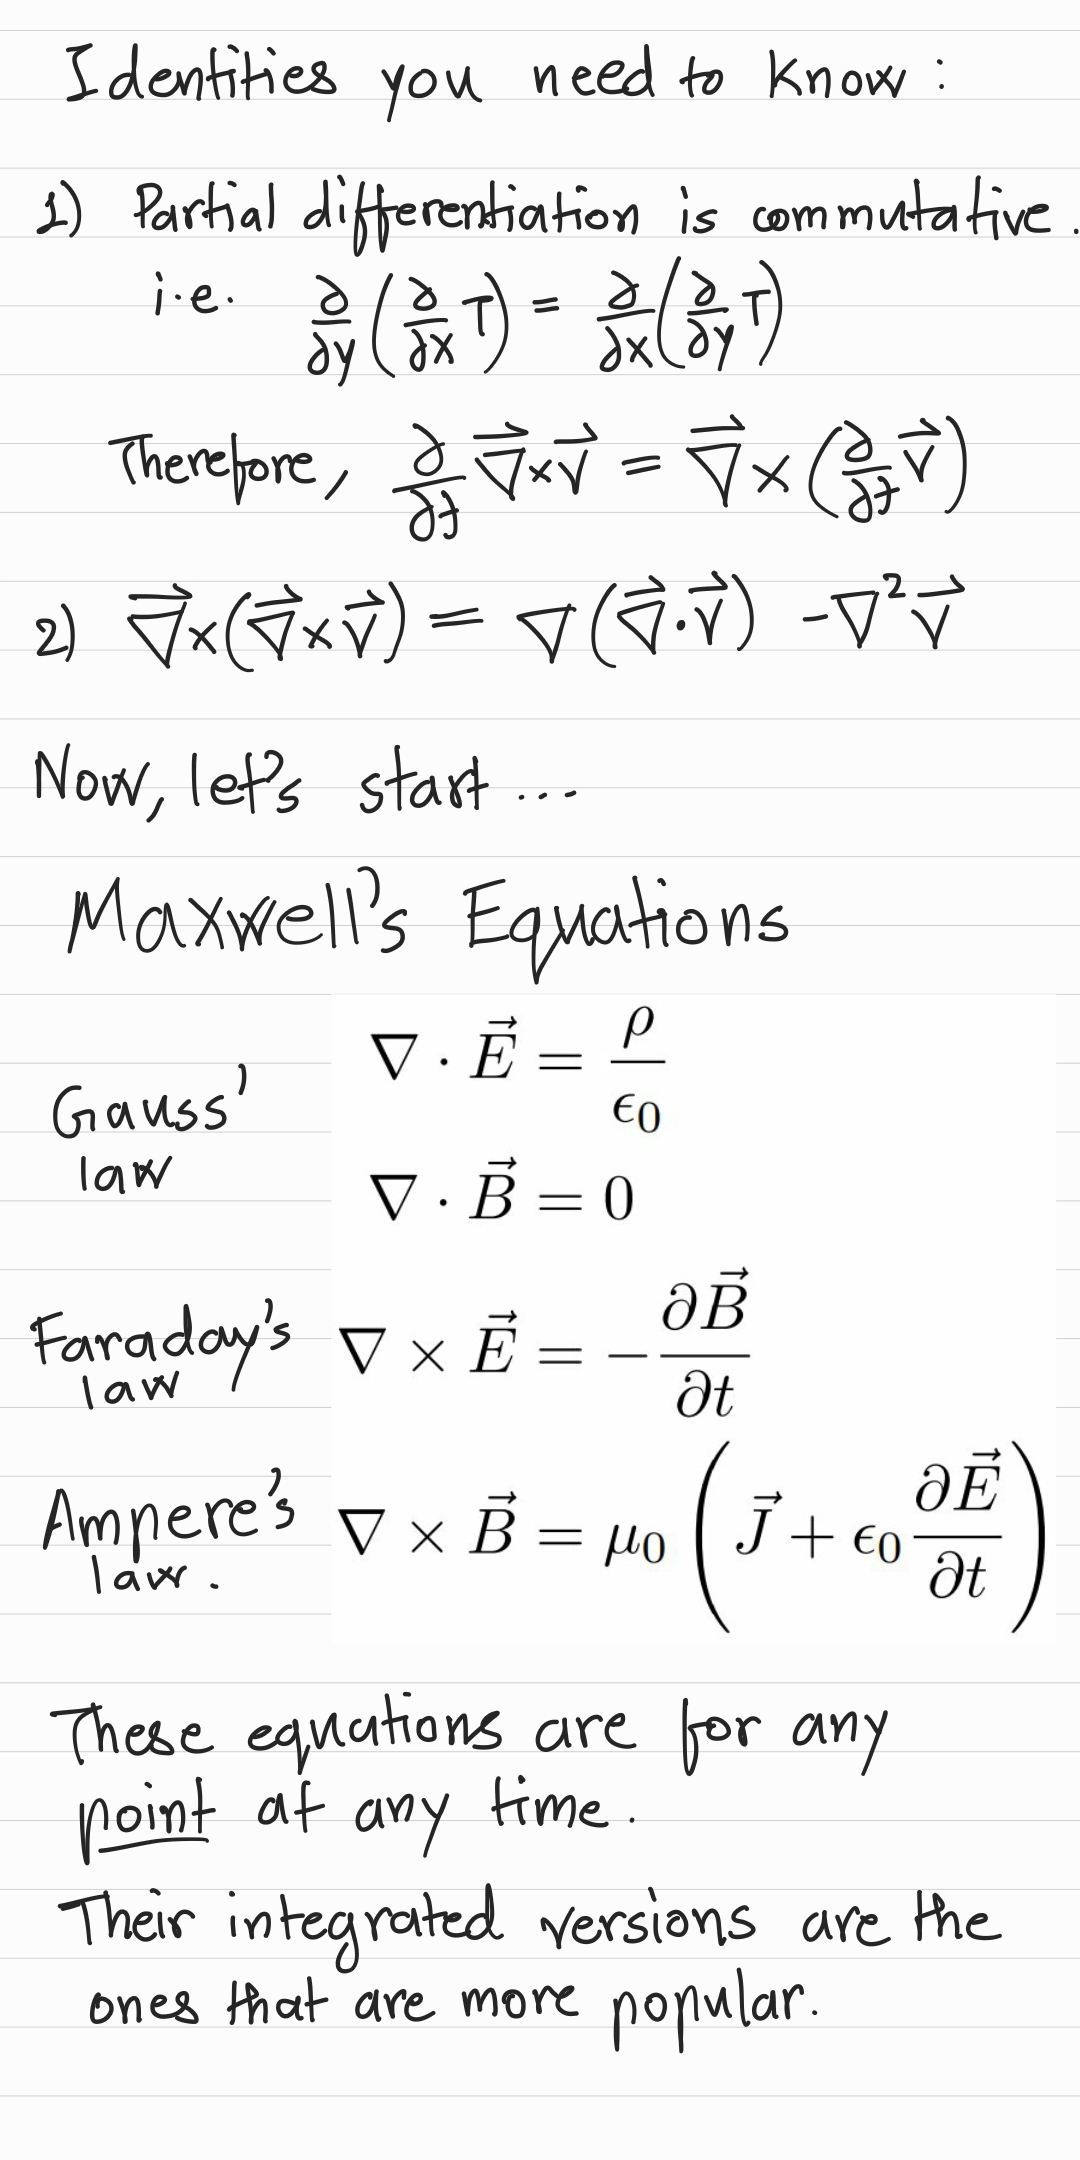 Identities you need to know :
1) Partial differentiation is commutative.
i.e. ∂/∂y (∂/∂x T) = ∂/∂x (∂/∂y T)
Therefore, ∂/∂t ∇⃗×v⃗ = ∇⃗ × (∂/∂t v⃗)
2) ∇⃗×(∇⃗×v⃗) = ∇(∇⃗·v⃗) -∇²v⃗
Now, let's start ...
Maxwell's Equations
Gauss' law
∇ · E⃗ = ρ/ϵ₀
∇ · B⃗ = 0
Faraday's law
∇ × E⃗ = −∂B⃗/∂t
Ampere's law.
∇ × B⃗ = μ₀ (J⃗ + ϵ₀ ∂E⃗/∂t)
These equations are for any
point at any time.
Their integrated versions are the
ones that are more popular.